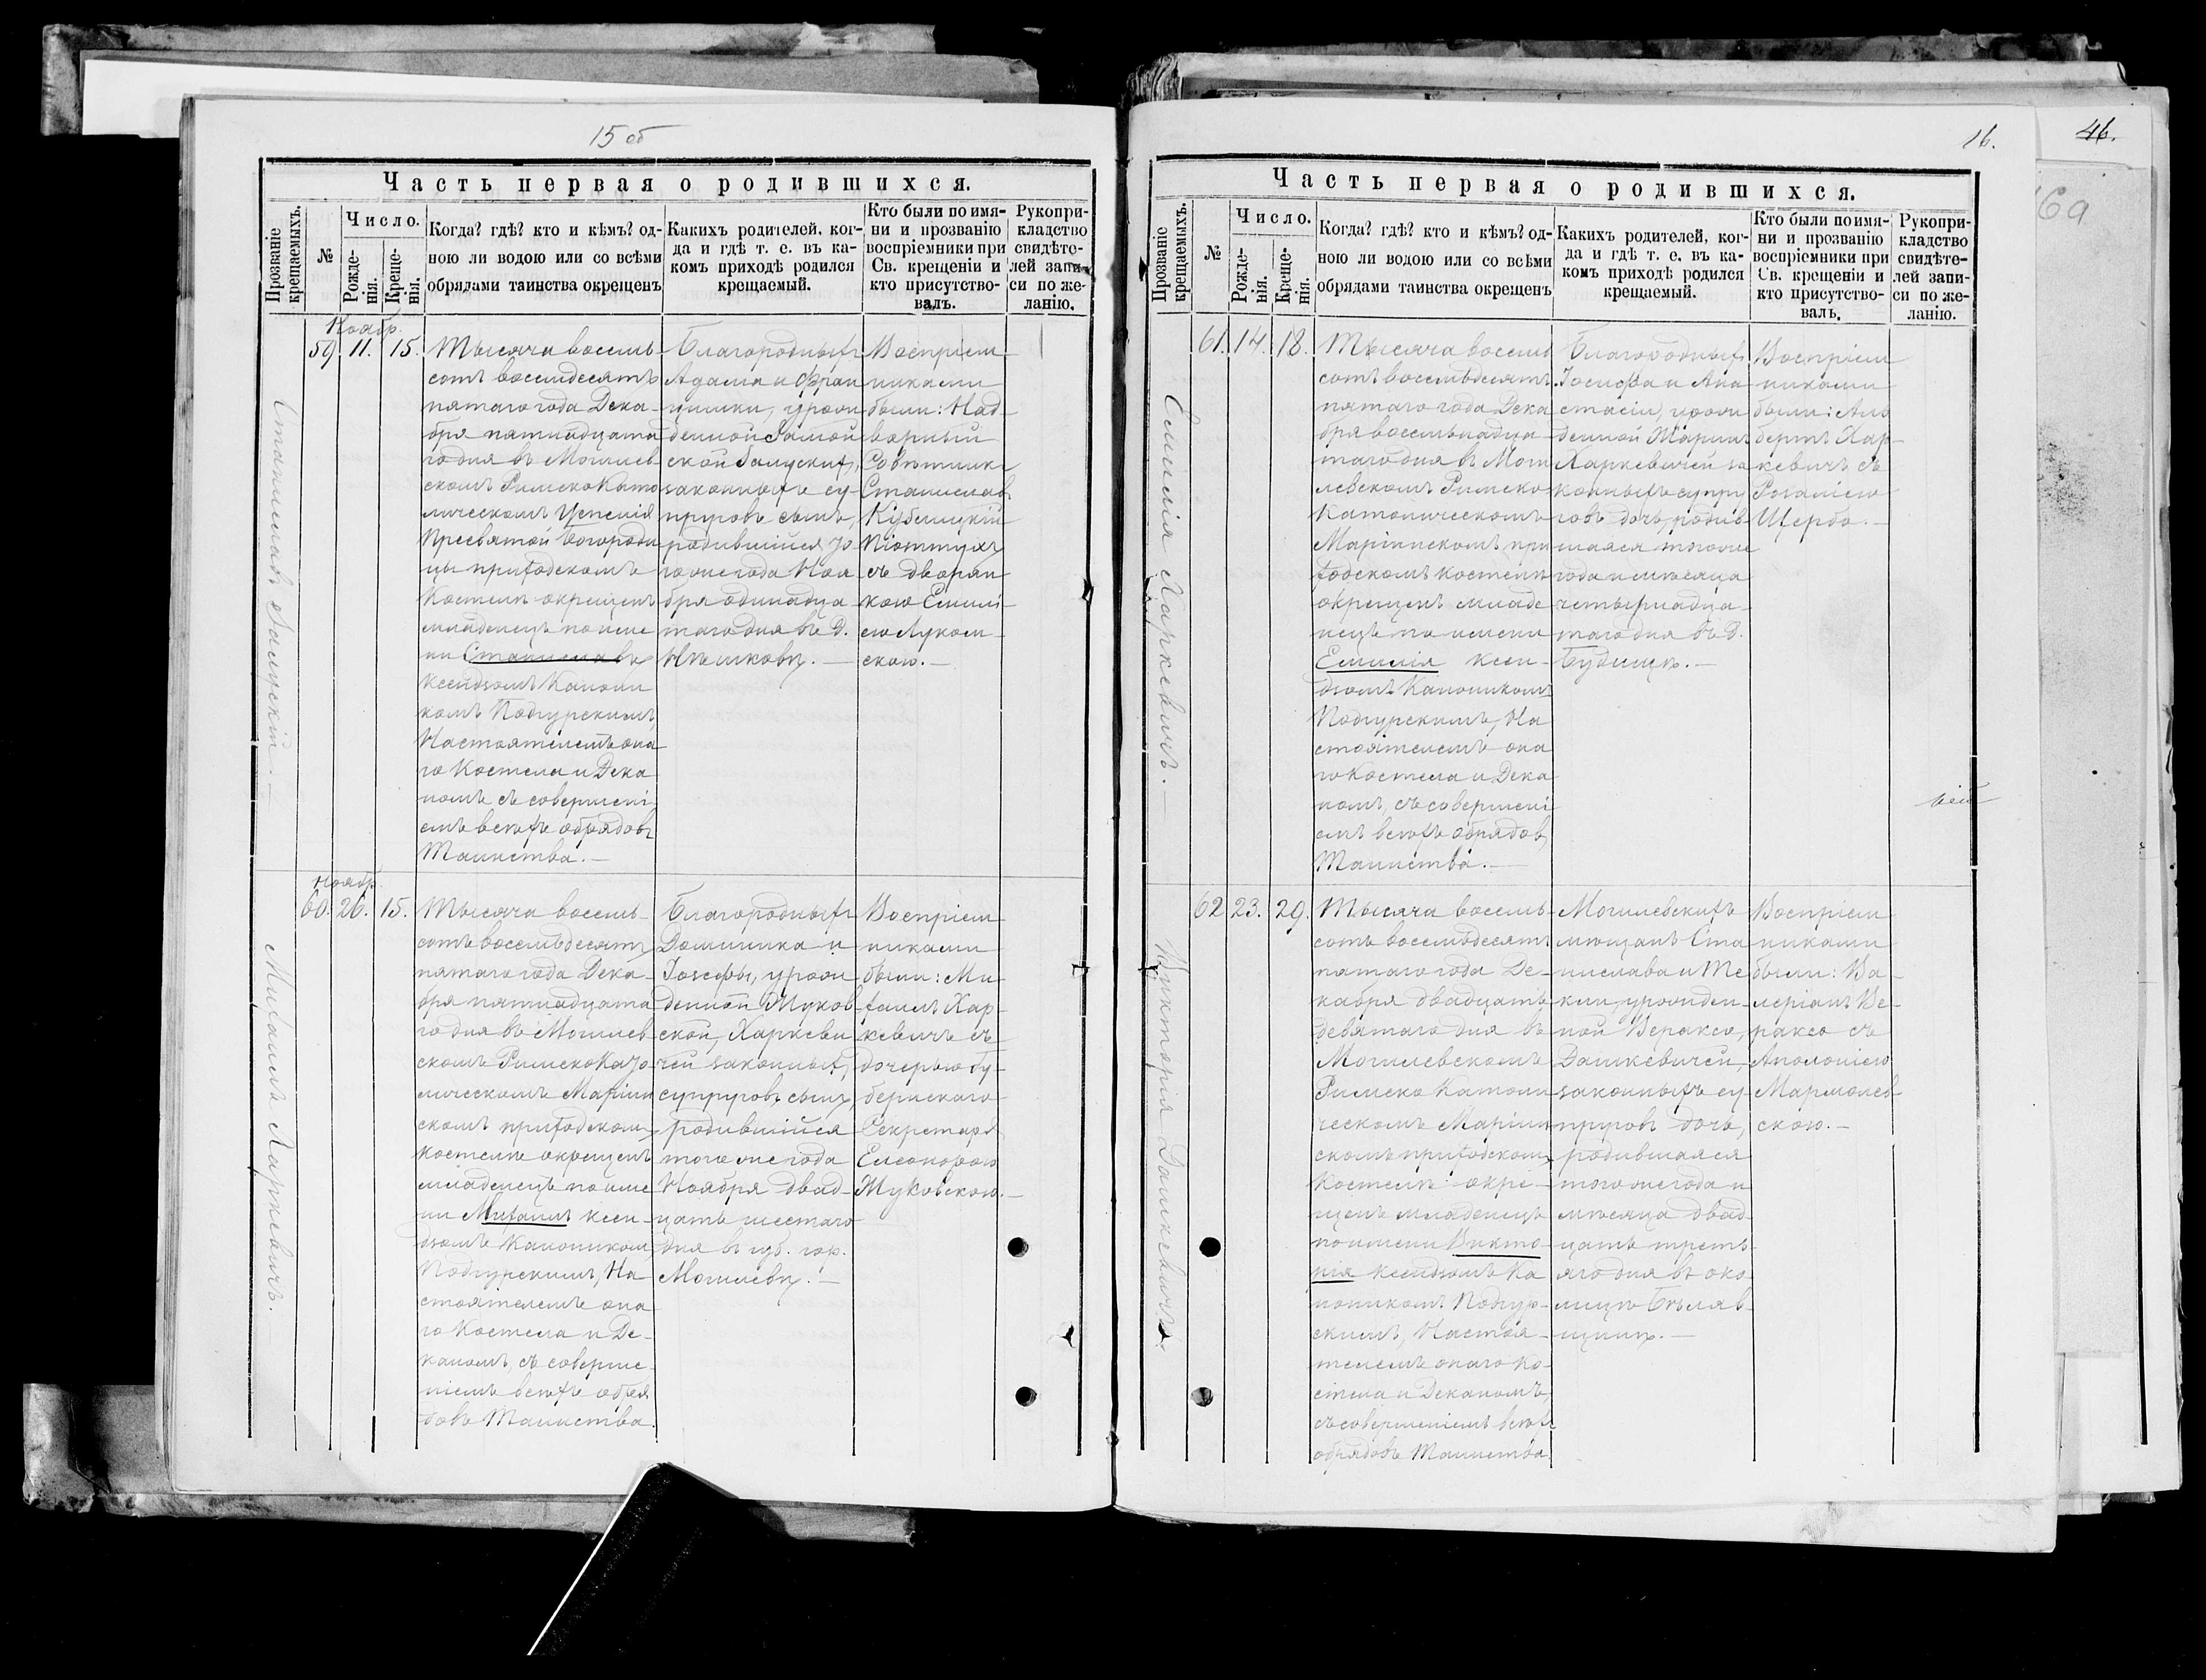 15 об
Часть первая о родившихся.
Прозваніе крещаемыхъ.
№
Число.
Рожде-
нія.
Креще-
нія.
Когда? гдѣ? кто и кѣмъ? од-
ною ли водою или со всѣми
обрядами таинства окрещенъ
Какихъ родителей, ког-
да и гдѣ т. е. въ ка-
комъ приходѣ родился
крещаемый.
Кто были по имя-
ни и прозванію
воспріемники при
Св. крещеніи и
кто присутство-
валъ.
Рукопри-
кладство
свидѣте-
лей запи-
си по же-
ланію.
Станиславъ
Ноябр.
59. 11. 15.
Тысяча восемь-
сотъ восемдесятъ
пятаго года Дека-
бря пятнадцата
го дня въ Могилев
скомъ РимскоКато
лическомъ Успенія
Пресвятой Богороди
цы приходскомъ
Костелѣ окрещенъ
младенецъ по име
ни Станиславъ
Ксендзомъ Канони
комъ Подгурскимъ,
Настоятелемъ она
го Костела и Дека
номъ съ совершені
емъ всѣхъ обрядовъ
Таинства.—
Благородныхъ
Адама и Фран
цишки, урож
денной
законныхъ су-
пруговъ сынъ,
родившійся то
го же года Ноя
бря одинадца
таго дня въ д.
Воспріем
никами
были: Над-
ворный
Совѣтникъ
Станиславъ
съ дворян
кою Емилі-
ею Луком
скою.—
Михаилъ Харкевичъ.
Ноябр.
60. 26. 15.
Тысяча восемь-
сотъ восемьдесятъ
пятаго года Дека-
бря пятнадцата
го дня въ Могилев
скомъ РимскоКато
лическомъ Маріин
скомъ приходскомъ
костелѣ окрещенъ
младенецъ по име
ни Михаилъ ксен-
дзомъ Каноникомъ
Подгурскимъ, На
стоятелемъ она
го Костела и Де-
каномъ, съ соверше-
ніемъ всѣхъ обря
довъ Таинства.
Благородныхъ
Доминика и
Іозефы, урож
денной Жуков
ской, Харкеви
чей законныхъ
супруговъ сынъ,
родившійся
того же года
Ноября двад-
цать шестаго
дня въ губ. гор.
Могилевѣ.—
Воспріем
никами
были: Ми-
хаилъ Хар-
кевичъ съ
дочерью гу-
бернскаго
Секретаря
Елеонорою
Жуковскою.—
16.
46.
Часть первая о родившихся.
Прозваніе крещаемыхъ.
№
Число.
Рожде-
нія.
Креще-
нія.
Когда? гдѣ? кто и кѣмъ? од-
ною ли водою или со всѣми
обрядами таинства окрещенъ
Какихъ родителей, ког-
да и гдѣ т. е. въ ка-
комъ приходѣ родился
крещаемый.
Кто были по имя-
ни и прозванію
воспріемники при
Св. крещеніи и
кто присутство-
валъ.
Рукопри-
кладство
свидѣте-
лей запи-
си по же-
ланію.
Емилія Харкевичъ.—
61. 14. 18.
Тысяча восемь
сотъ восемьдесятъ
пятаго года Дека
бря восемьнадца
таго дня въ Моги
левскомъ Римско
Католическомъ
Маріинскомъ при
ходскомъ костелѣ
окрещенъ младе
нецъ по имени
Емилія ксен-
дзомъ Каноникомъ
Подгурскимъ, На
стоятелемъ она
го Костела и Дека
номъ, съ совершені
емъ всѣхъ обрядовъ
Таинства.—
Благородныхъ
Іосифа и Ана
стасіи, урож
денной
Харкевичей за
конныхъ супру
говъ дочь, родив
шаяся того же
года и мѣсяца
четырнадца-
таго дня въ д.
Воспріем
никами
были: Аль
бертъ Хар-
кевичъ съ
Розаліею
Щербо.—
Викторія Дашкевичъ
62 23. 29.
Тысяча восемь-
сотъ восемьдесятъ
пятаго года Де-
кабря двадцать
девятаго дня въ
Могилевскомъ
Римско Католи
ческомъ Маріин
скомъ приходскомъ
Костелѣ окре-
щенъ младенецъ
по имени Викто-
рія ксендзомъ Ка
ноникомъ Подгур-
скимъ, Настоя-
телемъ онаго Ко-
стела и Деканомъ,
съ совершеніемъ всѣхъ
обрядовъ Таинства.
Могилевскихъ
мѣщанъ Ста
нислава и Те
кли, урожден-
ной Вераксо,
Дашкевичей,
законныхъ су
пруговъ дочь,
родившаяся
того же года и
мѣсяца двад-
цать треть-
яго дня въ око-
лицѣ Бѣляв-
щинѣ.—
Воспріем
никами
были: Ва-
леріанъ Ве-
раксо съ
Аполоніею
Мармолев
скою.—